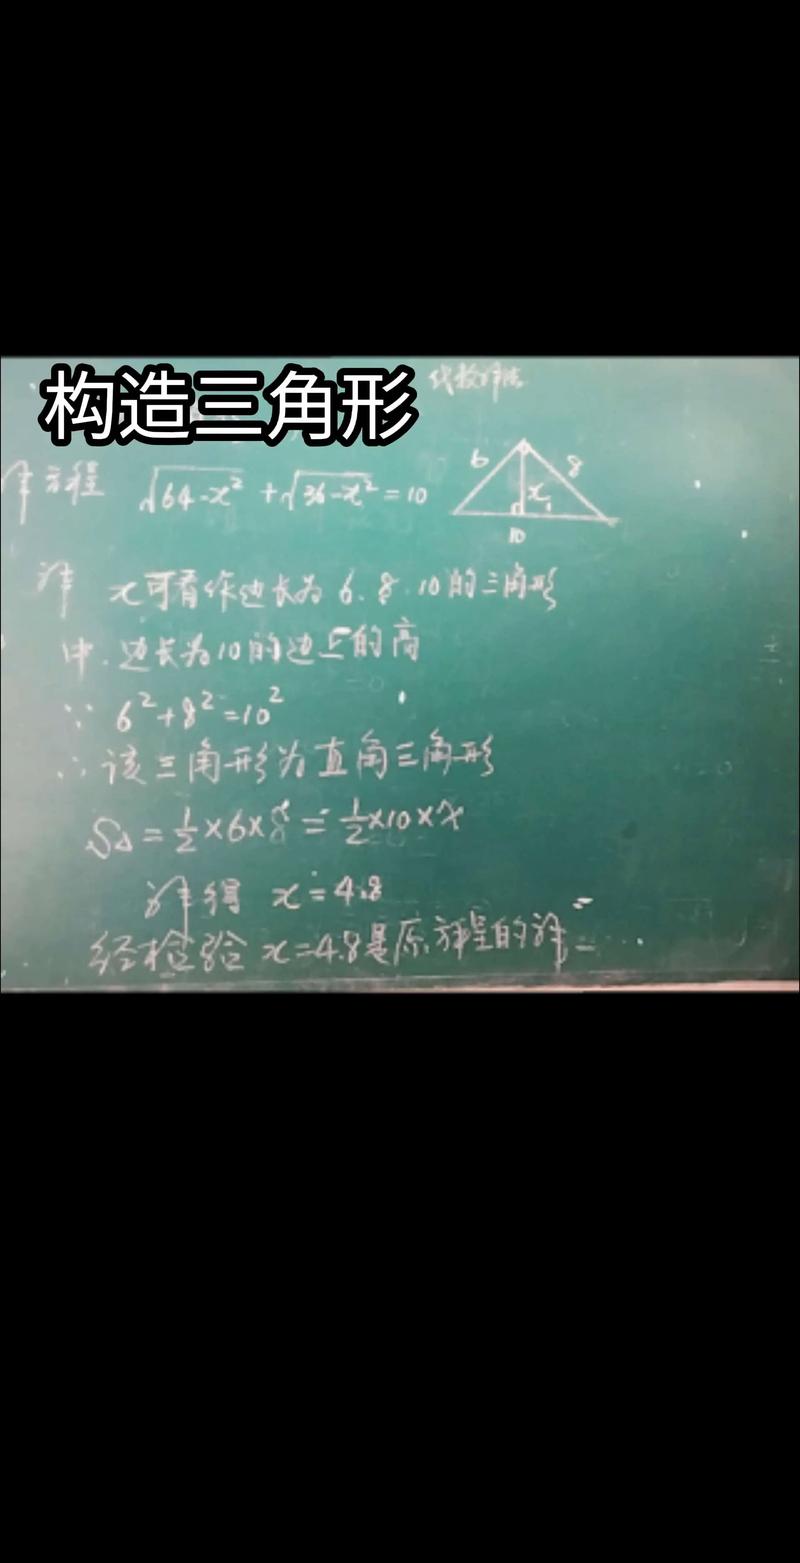 构造三角形
代数解法
解方程 √64-x² + √36-x² = 10
6
8
x
10
解 x可看作边长为6.8.10的三角形
中.边长为10的边上的高
∵ 6²+8²=10²
∴ 该三角形为直角三角形
S△ = 1/2×6×8 = 1/2×10×x
解得 x=4.8
经检验 x=4.8是原方程的解